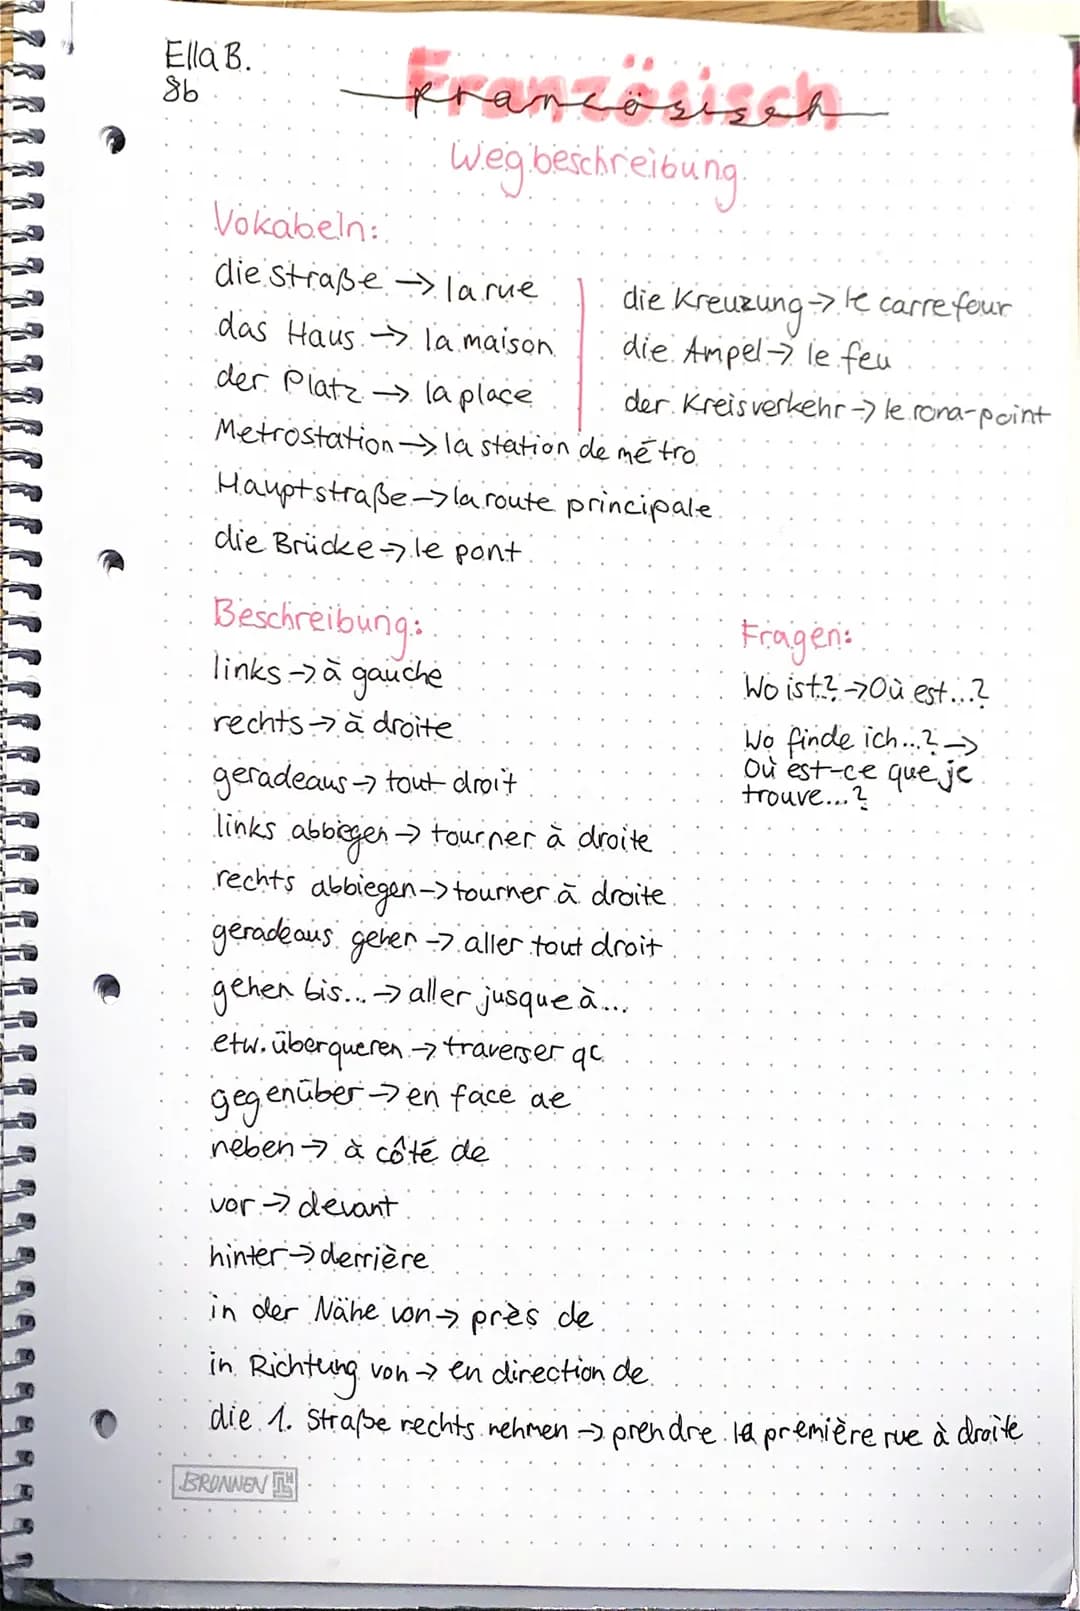 Ella B.
8b
Französisch
französisch
Wegbeschreibung
Vokabeln:
die Straße → la rue
das Haus → la maison
der Platz → la place
Metrostation → la station de métro
Hauptstraße → la route principale
die Brücke → le pont
die Kreuzung → le carrefour
die Ampel → le feu
der Kreisverkehr → le rona-point
Beschreibung:
links → à gauche
rechts → à droite
geradeaus → tout droit
links abbiegen → tourner à droite
rechts abbiegen → tourner à droite
geradeaus gehen → aller tout droit
gehen bis... → aller jusque à...
etw. überqueren → traverser qc
gegenüber → en face de
neben → à côté de
vor → devant
hinter → derrière
in der Nähe von → près de
in Richtung von → en direction de
die 1. Straße rechts nehmen → prendre la première rue à droite
Fragen:
Wo ist? → Où est...?
Wo finde ich...? →
Où est-ce que je
trouve...?
BRUNNEN